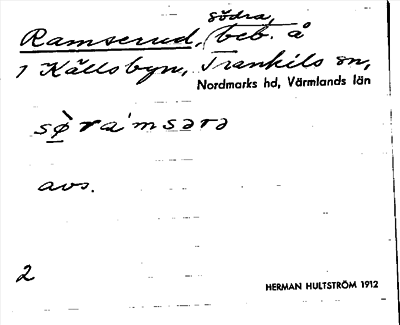 södra,
Ramserud, (beb. å
1 Källsbyn, Trankils sn,
Nordmarks hd, Värmlands län
avs.
2
HERMAN HULTSTRÖM 1912